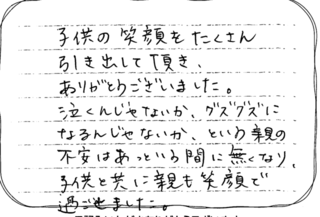 子供の笑顔をたくさん
引き出して頂き、
ありがとうございました。
泣くんじゃないか、グズグズに
なるんじゃないか、という親の
不安はあっという間に無くなり、
子供と共に親も笑顔で
過ごせました。